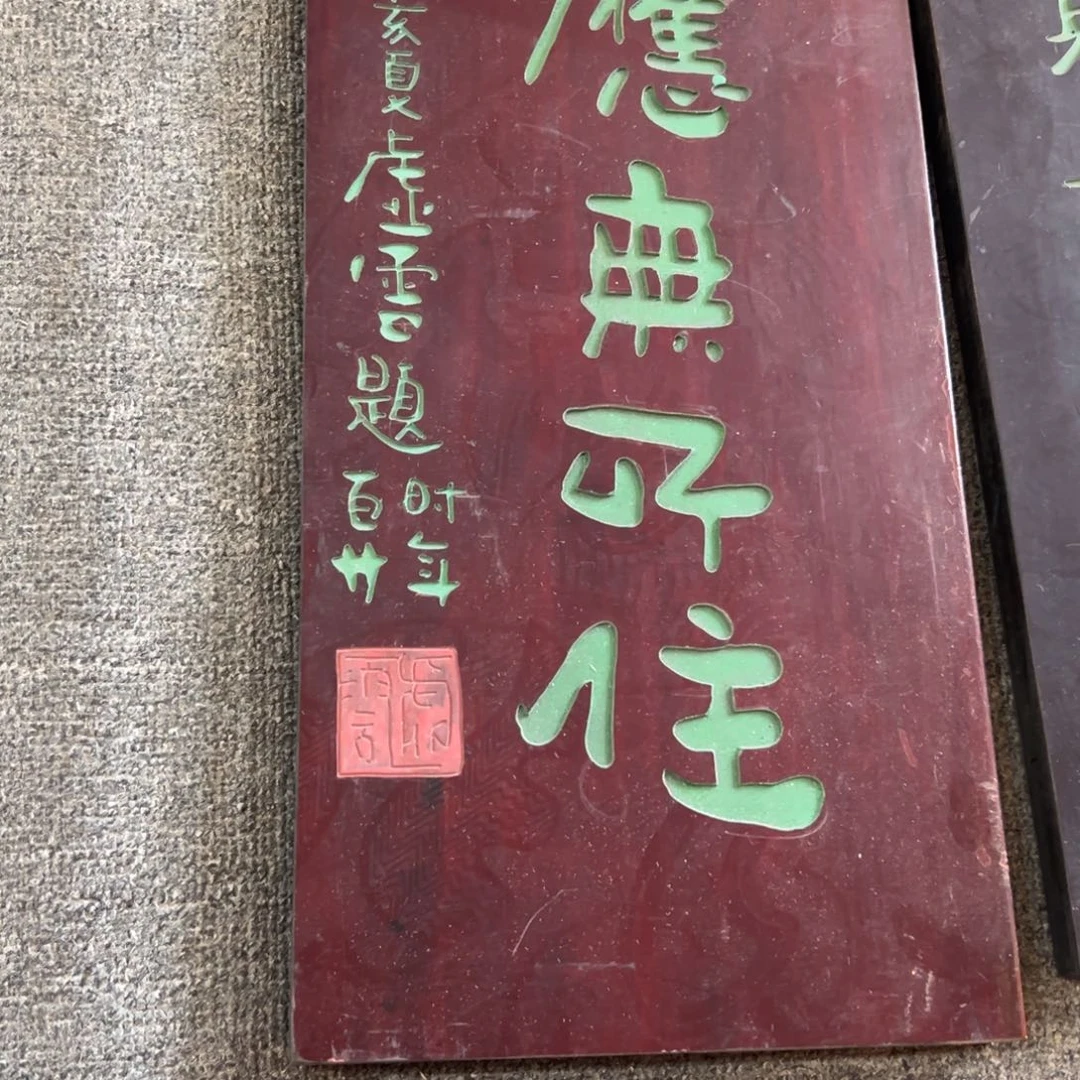 應無所住
亥夏虚雲題
时年
百廿